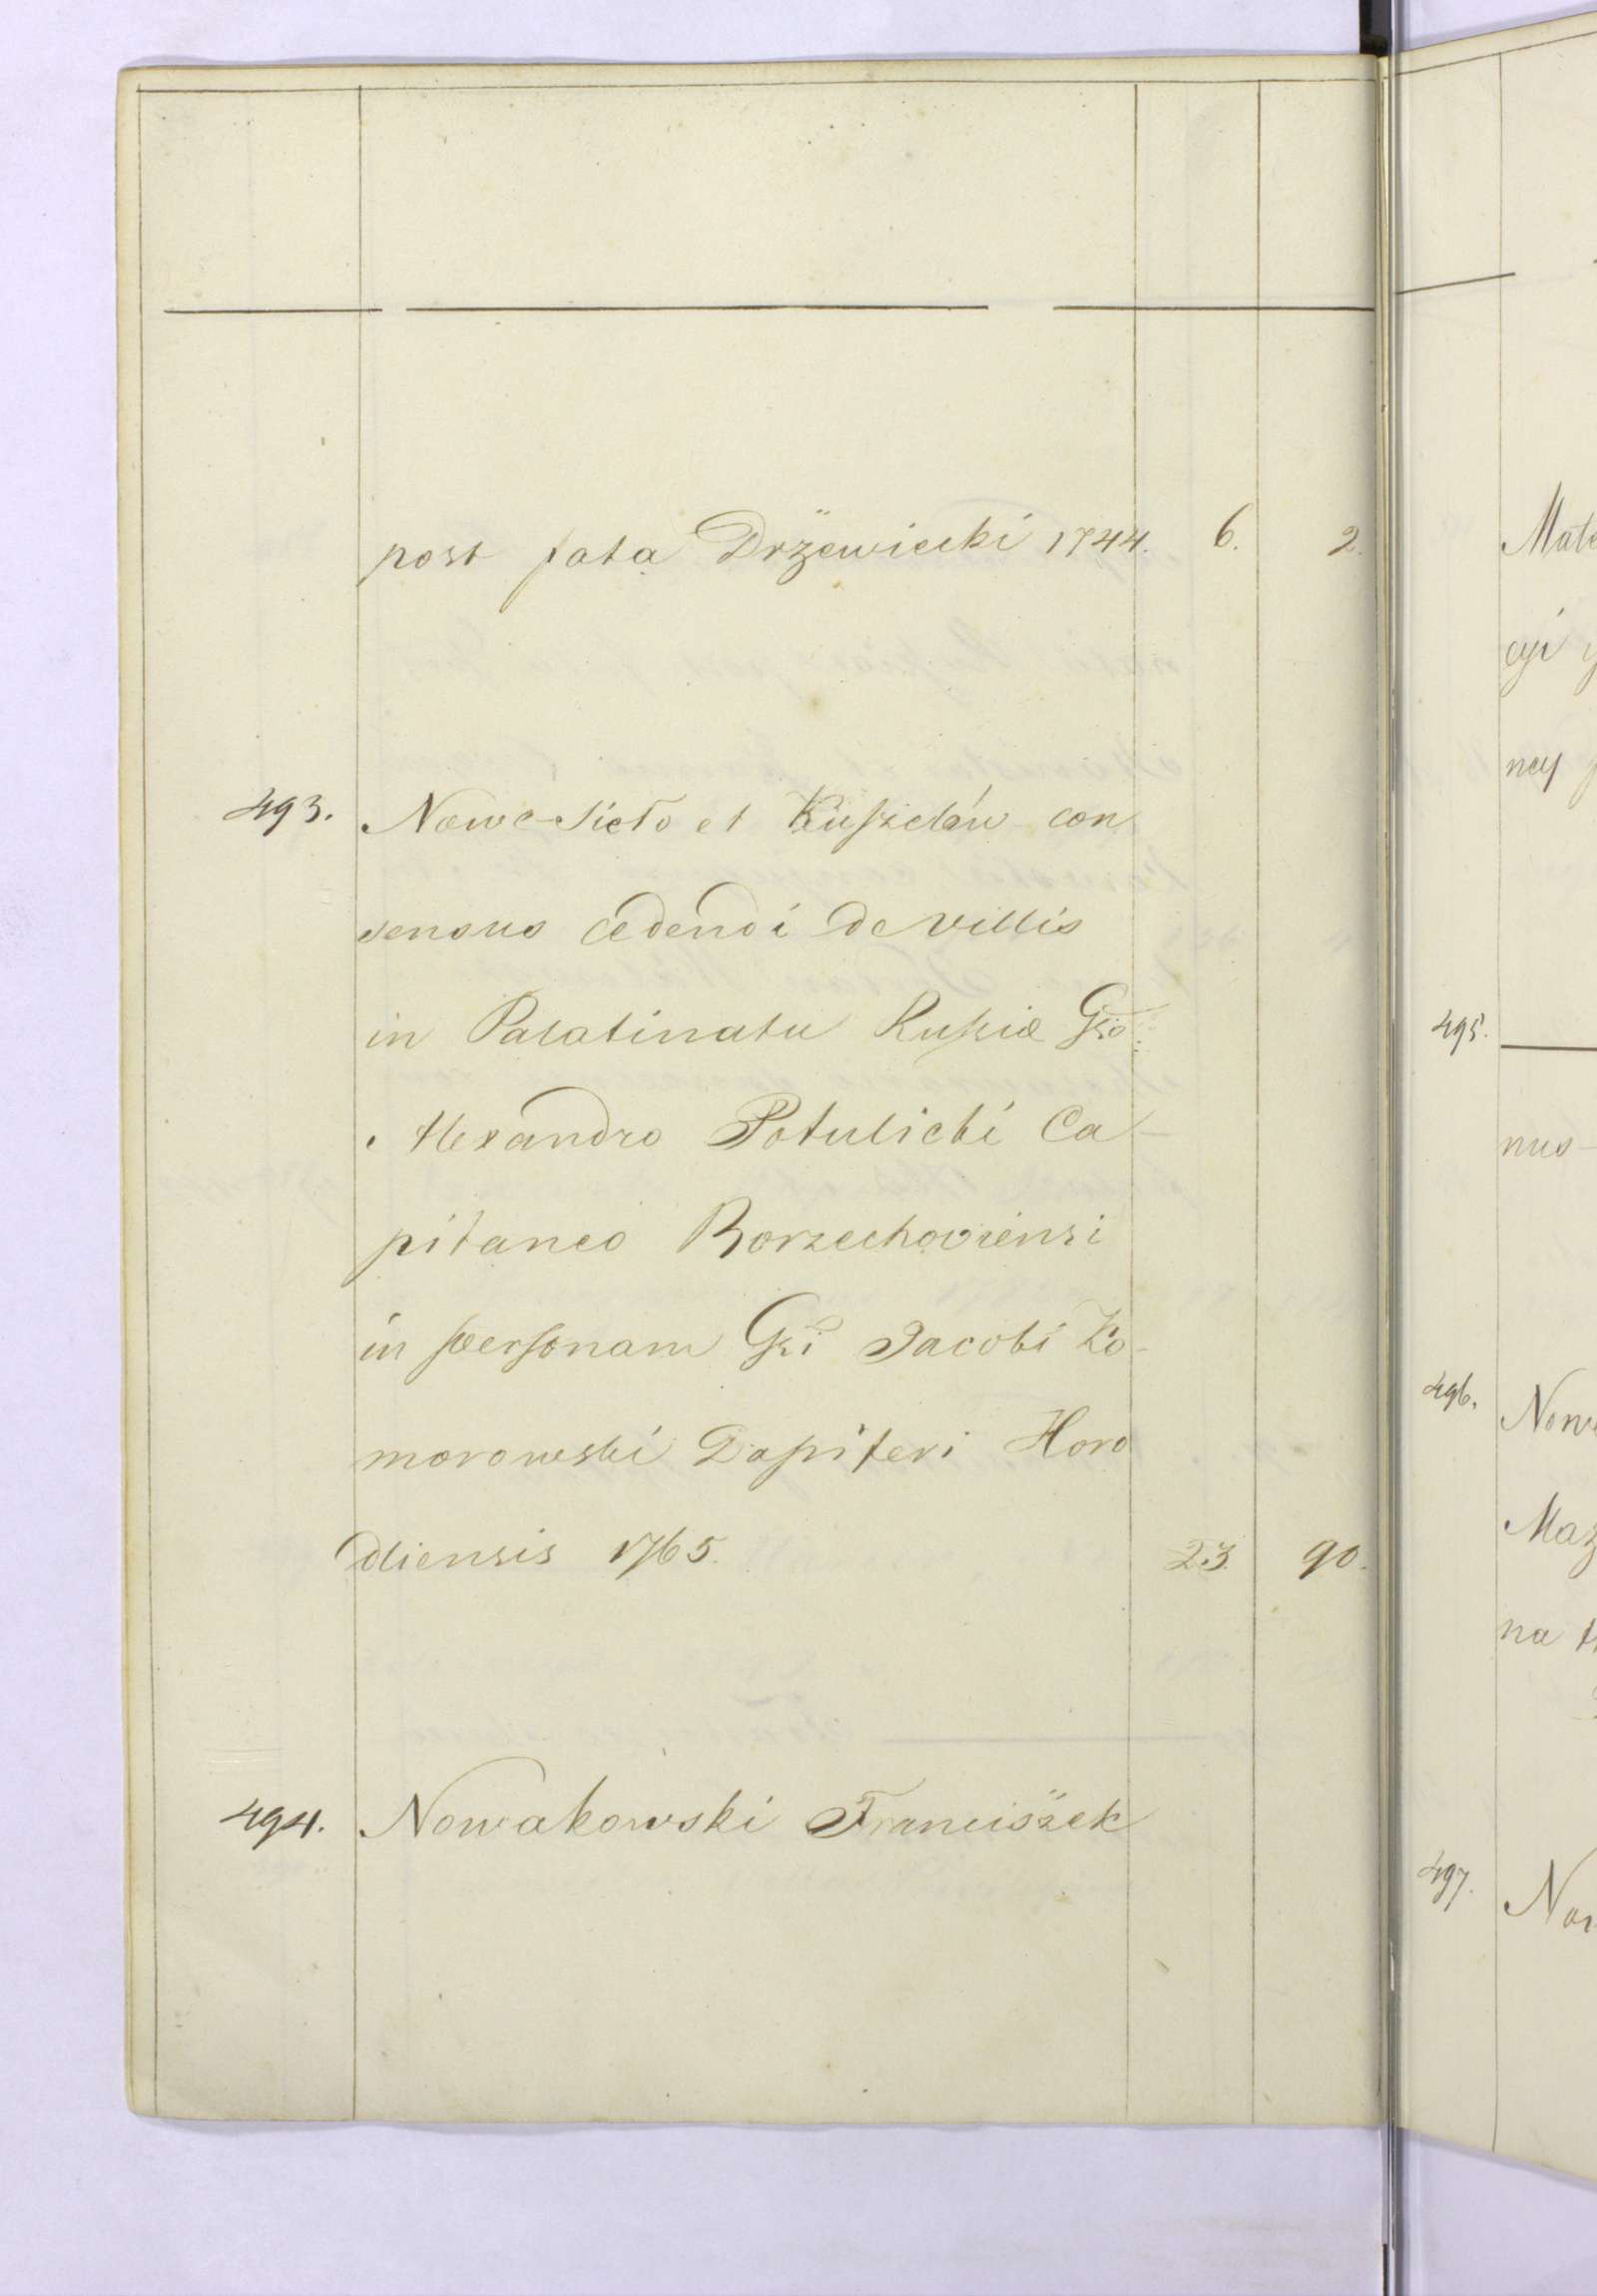 post fata Drzewiecki 1744. 6. 2.
493. Nowe Sioło et Ruszelów con
sensus cedendi de villis
in Palatinatu Russiæ Gso
Alexandro Potulicki Ca-
pitaneo Borzechoviensi
in personam Gsi Jacobi Ko-
morowski Dapiferi Horo
dliensis 1765. 23. 90.
494. Nowakowski Franciszek
Mat
cyi
ney
495.
nus
496. Now
Maz
na
497. No